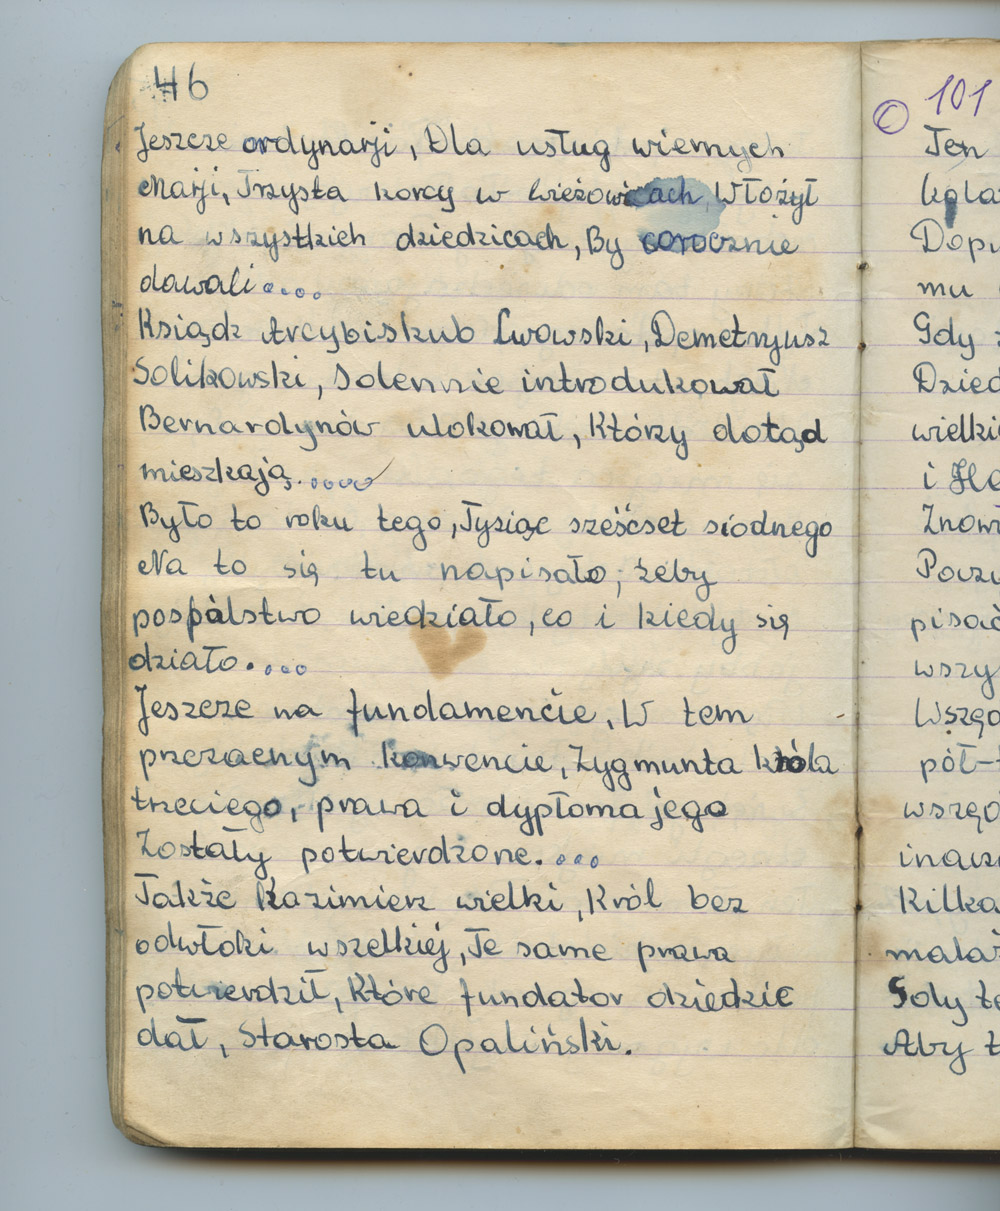 46
Jeszcze ordynarji, Dla usług wiernych
Marji, Trzysta korcy w Wieżowicach, Włożył
na wszystkich dziedzicach, By corocznie
dawali....
Ksiądz Arcybiskub Lwowski, Demetryusz
Solikowski, Solennie introdukował
Bernardynów ulokował, Którzy dotąd
mieszkają.....
Było to roku tego, Tysiąc sześćset siodnego
Na to się tu napisało, żeby
pospàlstwo wiedziało, co i kiedy się
działo....
Jeszcze na fundamencie, W tem
przezacnym konwencie, Zygmunta króla
trzeciego, prawa i dypłoma jego
Zostały potwierdzone....
Także Kazimierz wielki, Król bez
odwłoki wszelkiej, Te same prawa
potwierdził, Które fundator dziedzic
dał, Starosta Opaliński.
101
Ten
Gdy
i